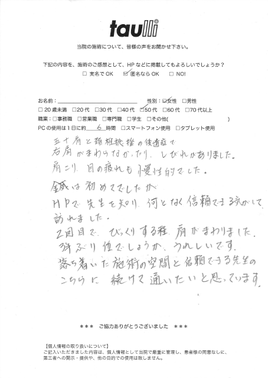 taulli
当院の施術について、皆様の声をお聞かせ下さい。
下記の内容を、施術のご感想として、HPなどに掲載してもよろしいでしょうか？
□ 実名でOK ☑ 匿名ならOK □ NO!
お名前: 性別: ☑女性 □男性
□20歳未満 □20代 □30代 □40代 □50代 □60代 □70代以上
職業: □事務職 □営業職 □専門職 □学生 □その他(
PCの使用は1日に約 6 時間 □スマートフォン使用 □タブレット使用
五十肩と頸椎捻挫の後遺症で
右肩がまわらなかったり、しびれがありました。
肩こり、目の疲れも慢性的でした。
鍼は初めてでしたが
HPで先生を知り、何となく信頼できる気がして
訪れました。
2回目で、びっくりする程、肩がまわりました。
ぶり位でしょうか、うれしいです。
落ち着いた施術の空間と信頼できる先生の
こちらに、続けて通いたいと思っています。
*** ご協力ありがとうございました ***
【個人情報の取り扱いについて】
ご記入いただきました内容は、個人情報として当院で厳重に管理し、患者様の同意なしに、
第三者への開示・提供や、他の目的での使用は致しません。